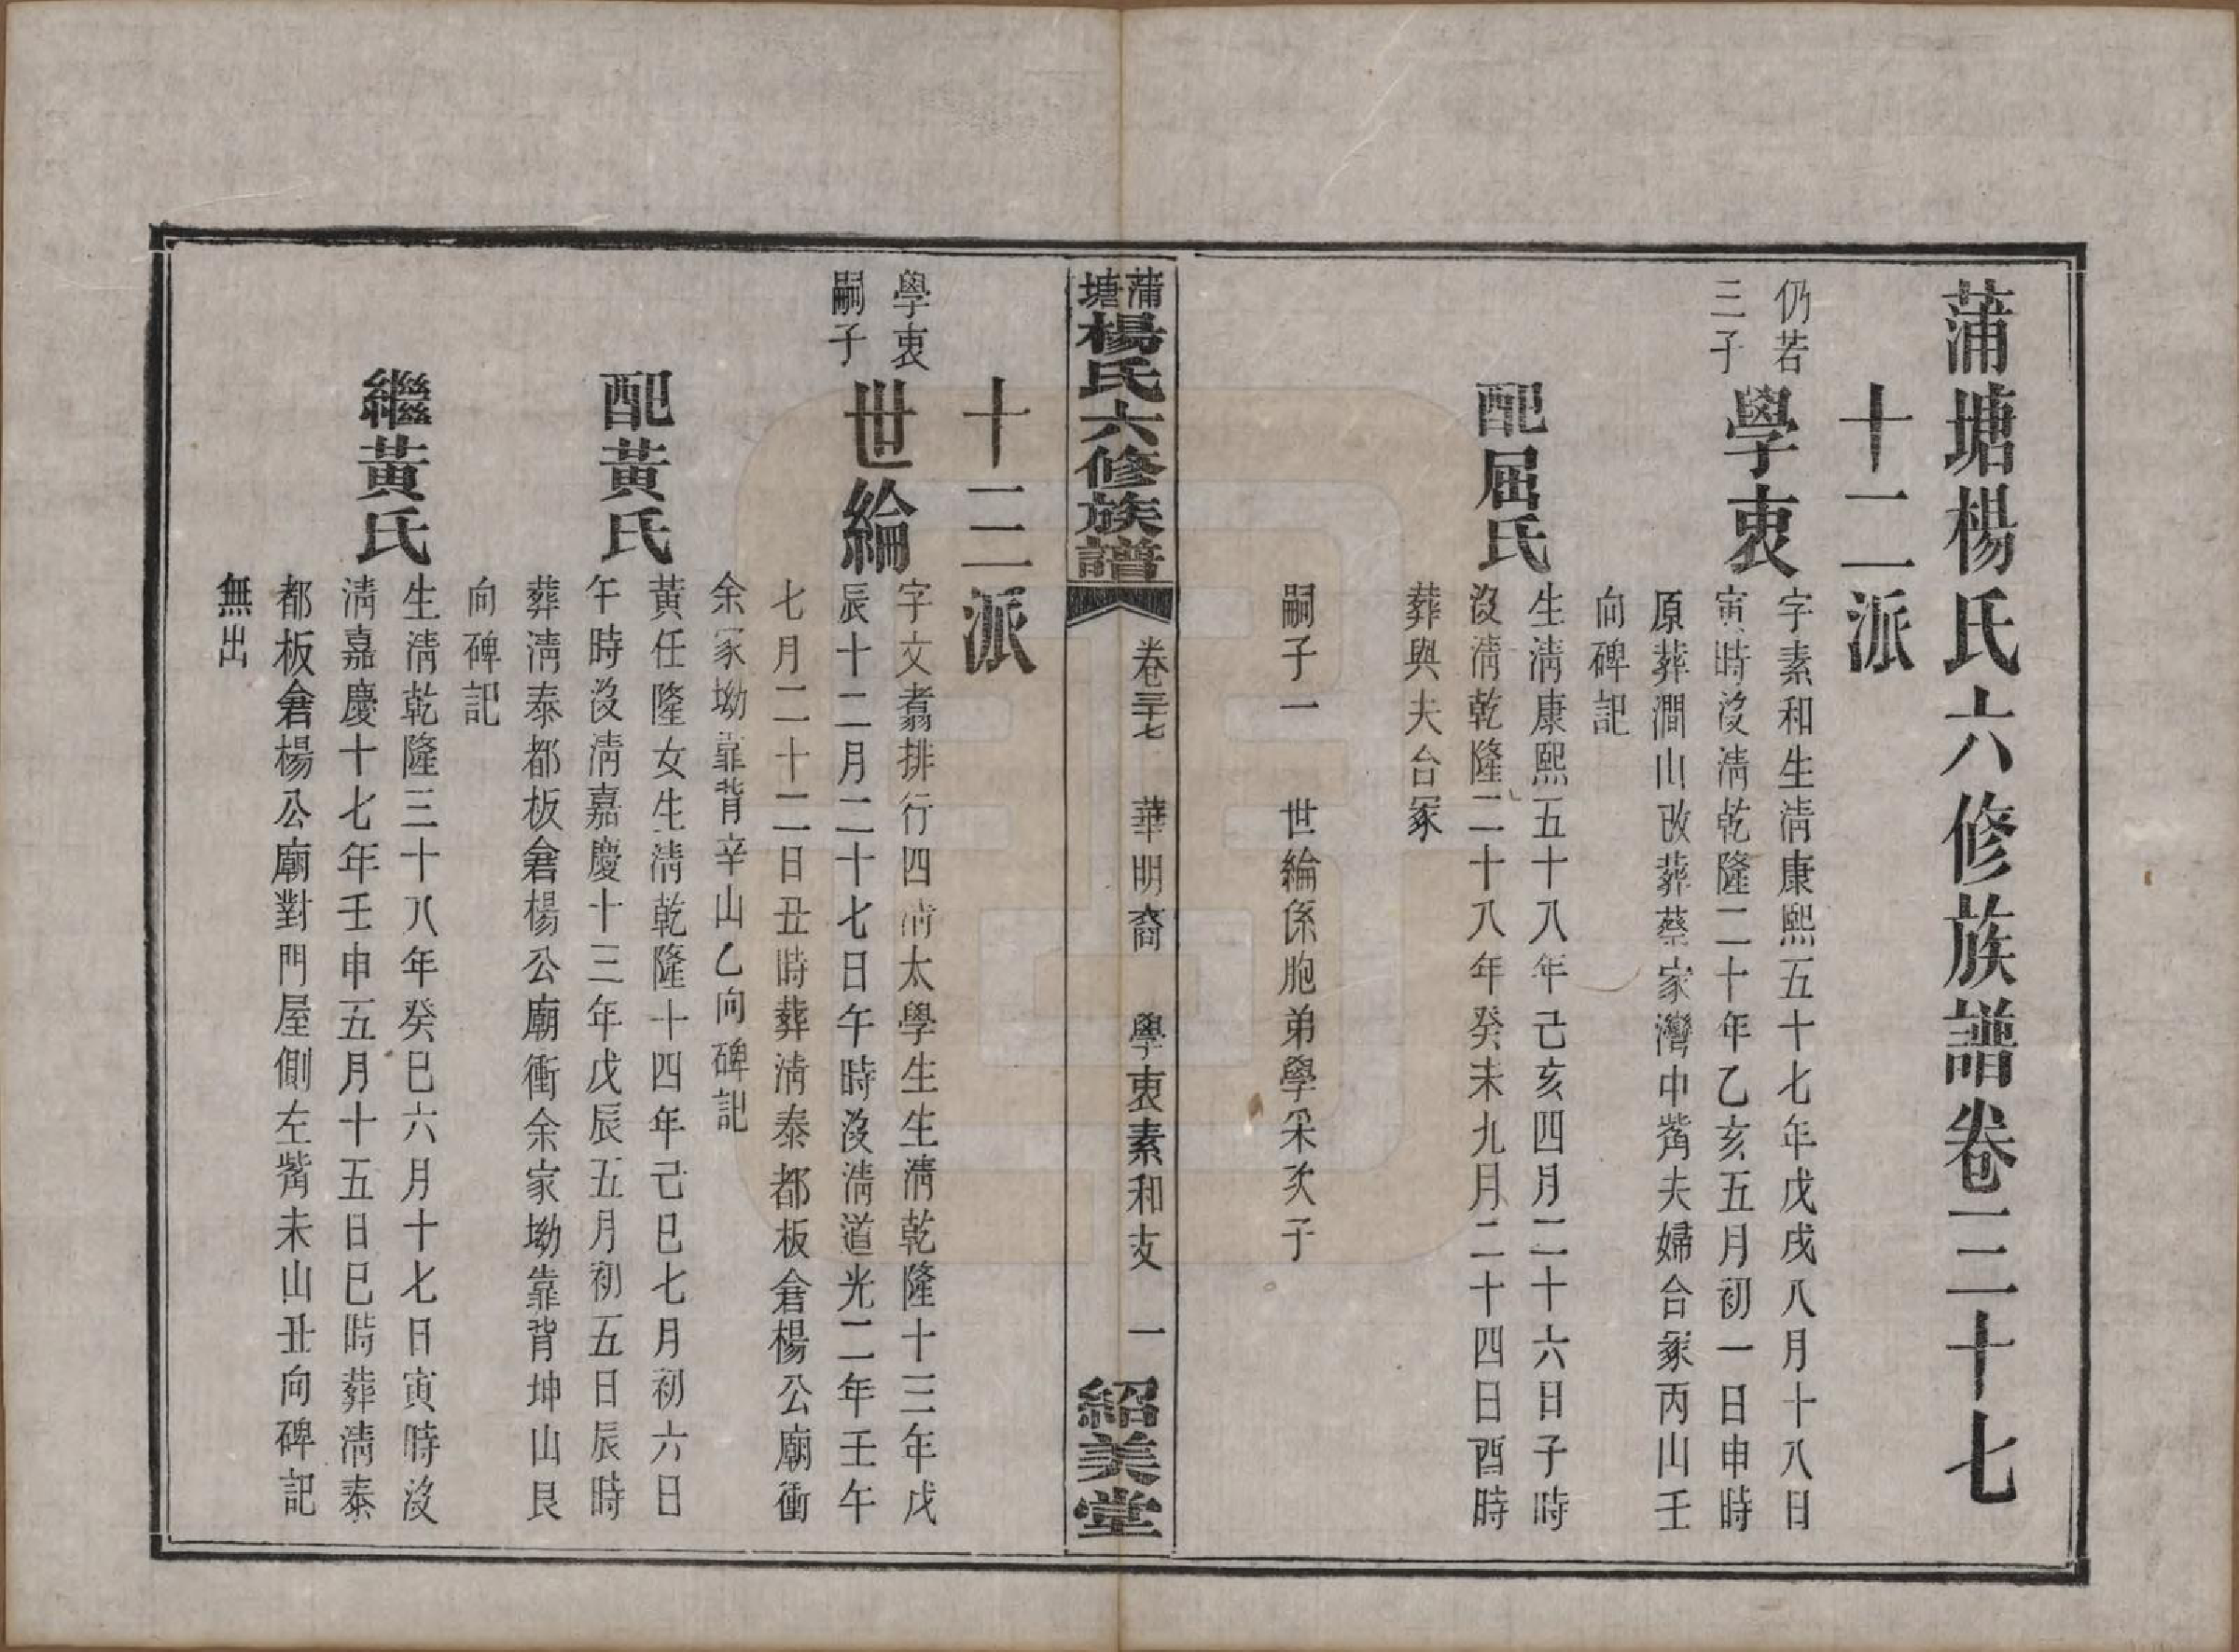 蒲塘楊氏六修族譜卷三十七
十二派
仍若
三子
學衷
字素和生淸康熙五十七年戊戌八月十八日
寅時沒淸乾隆二十年乙亥五月初一日申時
原葬澗山改葬蔡家灣中嘴夫婦合冢丙山壬
向碑記
配屈氏
生淸康熙五十八年己亥四月二十六日子時
沒淸乾隆二十八年癸未九月二十四日酉時
葬與夫合冢
嗣子一　世綸係胞弟學采次子
蒲塘楊氏六修族譜　卷三十七　華明裔　學衷素和支　一　紹美堂
十三派
學衷
嗣子
世綸
字文翥排行四淸太學生生淸乾隆十三年戊
辰十二月二十七日午時沒淸道光二年壬午
七月二十二日丑時葬淸泰都板倉楊公廟衝
余家坳靠背辛山乙向碑記
配黃氏
黃任隆女生淸乾隆十四年己巳七月初六日
午時沒淸嘉慶十三年戊辰五月初五日辰時
葬淸泰都板倉楊公廟衝余家坳靠背坤山艮
向碑記
繼黃氏
生淸乾隆三十八年癸巳六月十七日寅時沒
淸嘉慶十七年壬申五月十五日巳時葬淸泰
都板倉楊公廟對門屋側左嘴未山丑向碑記
無出